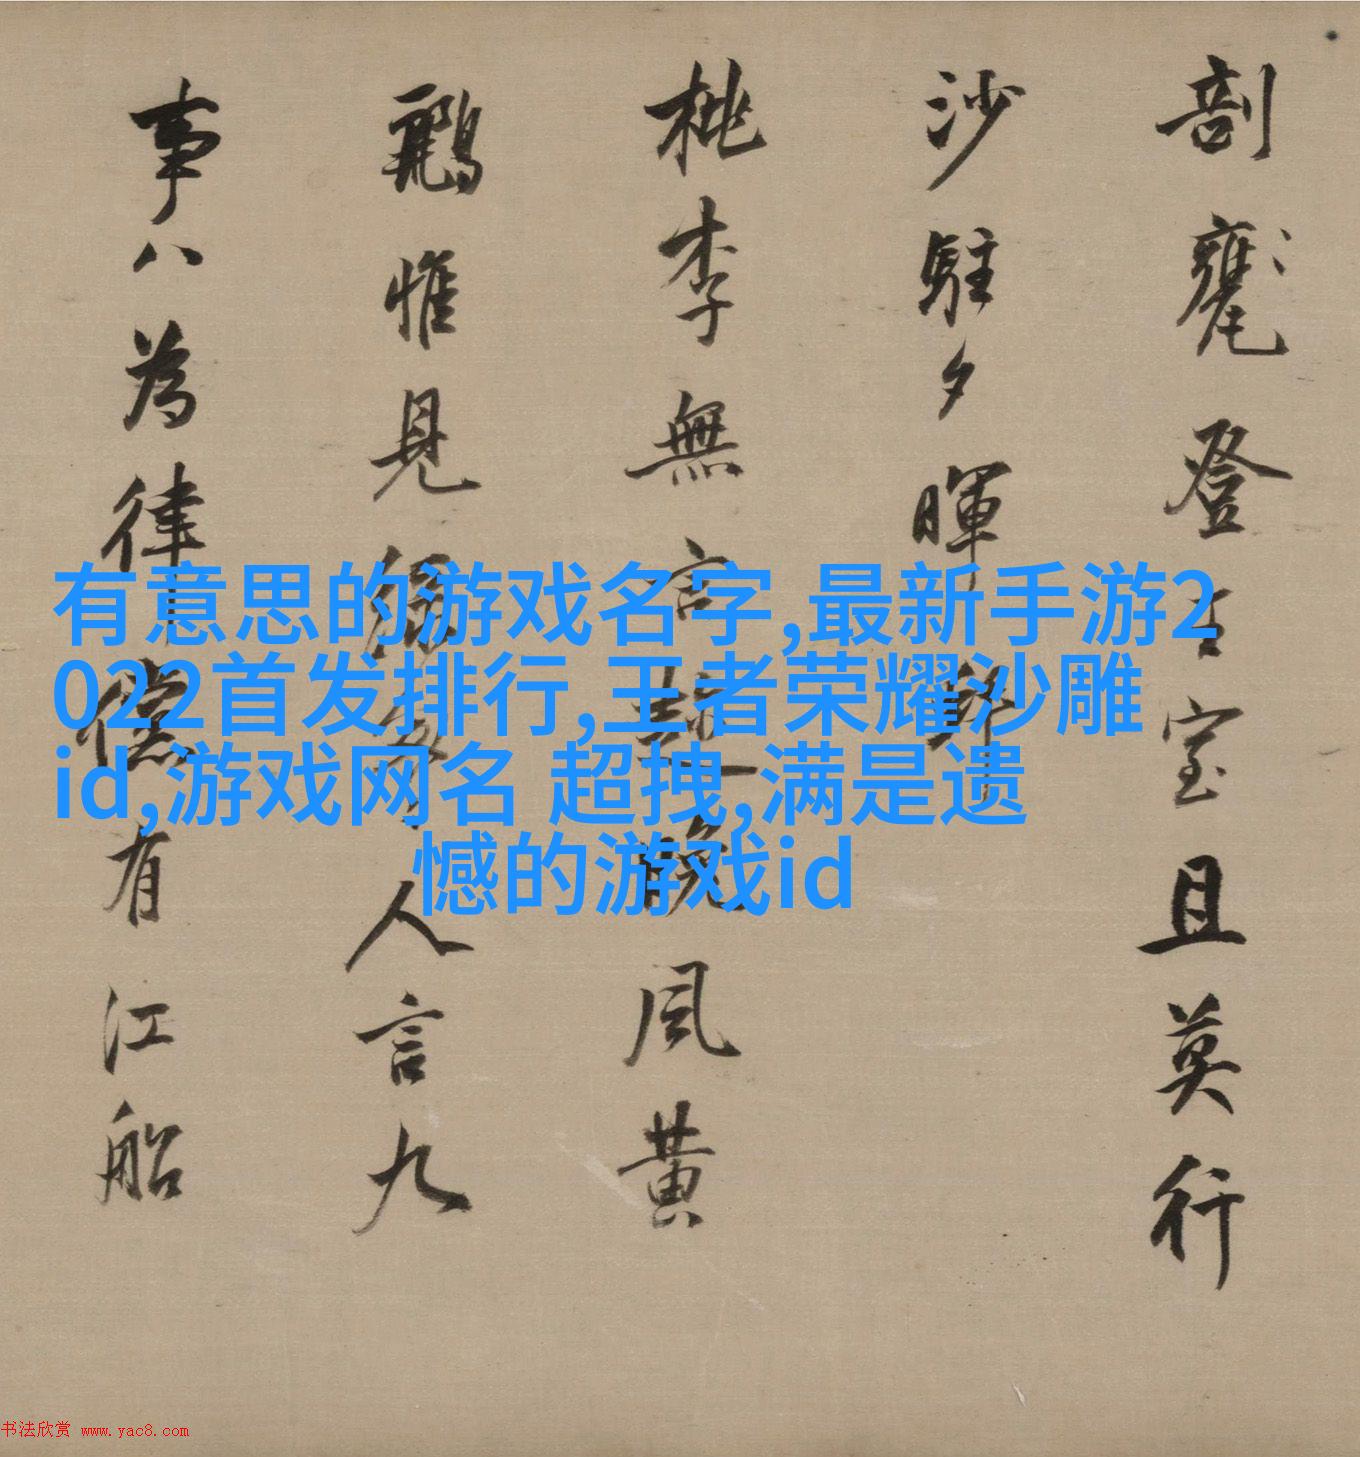 剖甕登室且莫行
沙駐夕暉
桃李無言晚風黃
鸝惟見人言九
事八為律儻有江船
有意思的游戏名字,最新手游2
022首发排行,王者荣耀沙雕
id,游戏网名 超拽,满是遗
憾的游戏id
书法欣赏 www.yac8.com